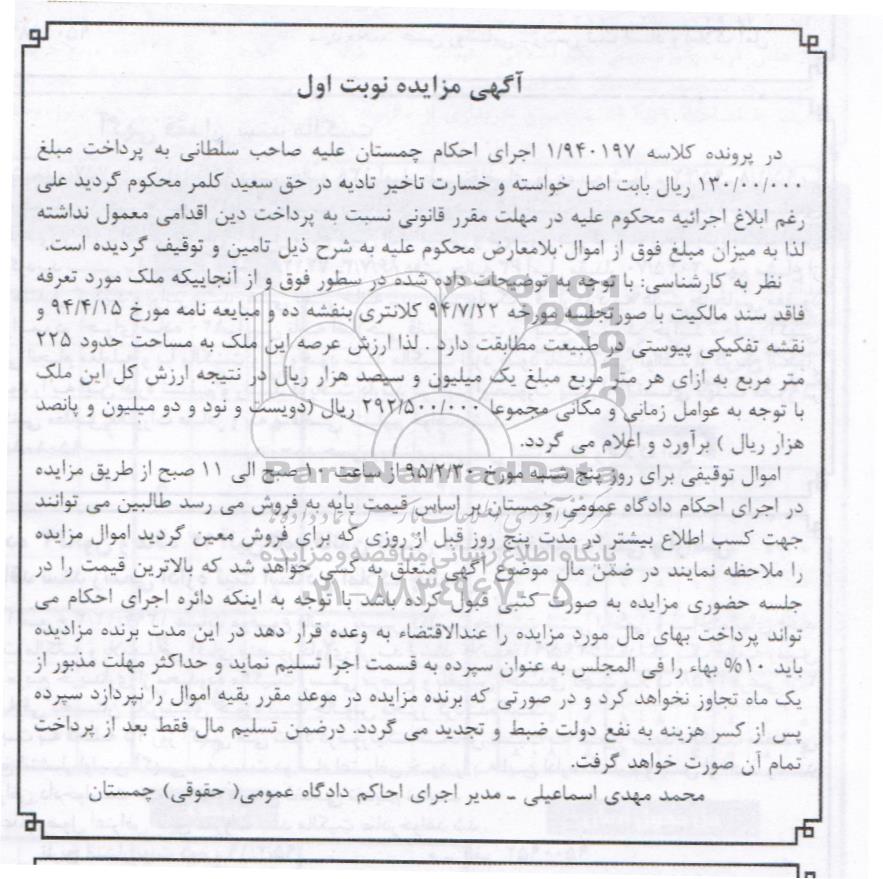 آگهی مزایده نوبت اول
در پرونده کلاسه ۱/۹۴۰۱۹۷ اجرای احکام چمستان علیه صاحب سلطانی به پرداخت مبلغ
۱۳۰/۰۰/۰۰۰ ریال بابت اصل خواسته و خسارت تاخیر تادیه در حق سعید کلمر محکوم گردید علی
رغم ابلاغ اجرائیه محکوم علیه در مهلت مقرر قانونی نسبت به پرداخت دین اقدامی معمول نداشته
لذا به میزان مبلغ فوق از اموال بلامعارض محکوم علیه به شرح ذیل تامین و توقیف گردیده است.
نظر به کارشناسی: با توجه به توضیحات داده شده در سطور فوق و از آنجاییکه ملک مورد تعرفه
فاقد سند مالکیت با صورتجلسه مورخه ۹۴/۷/۲۲ کلانتری بنفشه ده و مبایعه نامه مورخ ۹۴/۴/۱۵ و
نقشه تفکیکی پیوستی در طبیعت مطابقت دارد . لذا ارزش عرصه این ملک به مساحت حدود ۲۲۵
متر مربع به ازای هر متر مربع مبلغ یک میلیون و سیصد هزار ریال در نتیجه ارزش کل این ملک
با توجه به عوامل زمانی و مکانی مجموعا ۲۹۲/۵۰۰/۰۰۰ ریال (دویست و نود و دو میلیون و پانصد
هزار ریال ) برآورد و اعلام می گردد.
اموال توقیفی برای روز پنج شنبه مورخ ۹۵/۲/۳۰ از ساعت ۱۰ صبح الی ۱۱ صبح از طریق مزایده
در اجرای احکام دادگاه عمومی چمستان بر اساس قیمت پایه به فروش می رسد طالبین می توانند
جهت کسب اطلاع بیشتر در مدت پنج روز قبل از روزی که برای فروش معین گردید اموال مزایده
را ملاحظه نمایند در ضمن مال موضوع آگهی متعلق به کسی خواهد شد که بالاترین قیمت را در
جلسه حضوری مزایده به صورت کتبی قبول کرده باشد با توجه به اینکه دائره اجرای احکام می
تواند پرداخت بهای مال مورد مزایده را عندالاقتضاء به وعده قرار دهد در این مدت برنده مزادیده
باید ۱۰% بهاء را فی المجلس به عنوان سپرده به قسمت اجرا تسلیم نماید و حداکثر مهلت مذبور از
یک ماه تجاوز نخواهد کرد و در صورتی که برنده مزایده در موعد مقرر بقیه اموال را نپردازد سپرده
پس از کسر هزینه به نفع دولت ضبط و تجدید می گردد. درضمن تسلیم مال فقط بعد از پرداخت
تمام آن صورت خواهد گرفت.
محمد مهدی اسماعیلی ـ مدیر اجرای احاکم دادگاه عمومی( حقوقی) چمستان
ParsNamadData
پایگاه اطلاع رسانی مناقصه و مزایده
۰۲۱-۸۸۳۴۹۶۷۰-۵